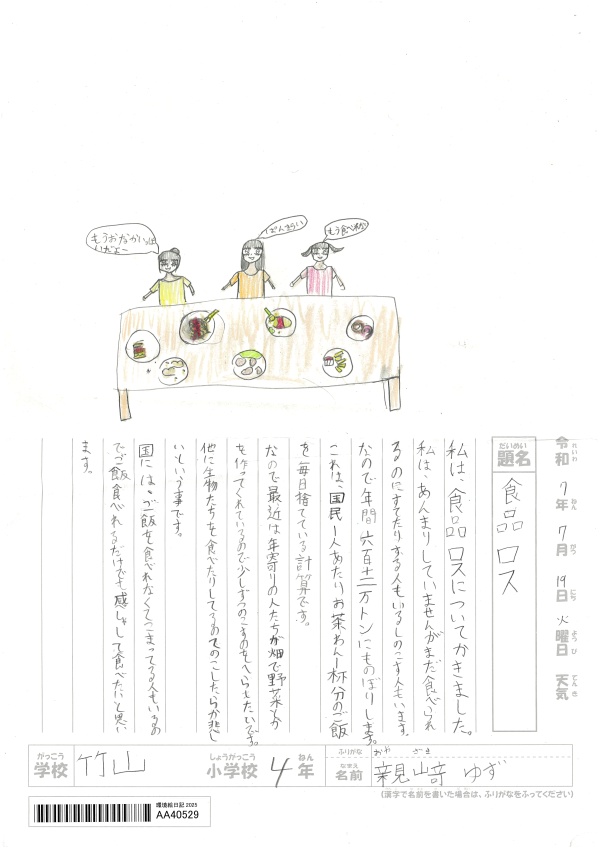 もうおなかいっぱいだよー
ばんざい
もう食べれない
令和7年7月19日火曜日 天気
れいわ ねん がつ にち ようび てんき
だいめい
題名 食品ロス
私は、食品ロスについてかきました。
私は、あんまりしていませんがまだ食べられ
るのにすてたりする人もいるしのこす人もいます。
なので年間六百十二万トンにものぼりします。
これは、国民一人あたりお茶わん一杯分のご飯
を毎日捨てている計算です。
なので最近は年寄りの人たちが畑で野菜とか
を作ってくれているので少しずつのこすのをへらしたいです。
他に生物たちを食べたりしてるのでのこしたらが悲し
いという事です。
国には、ご飯を食べれなくてこまってる人もいるの
でご飯食べれるだけでも感しゃして食べたいと思い
ます。
がっこう しょうがっこう ねん
学校 竹山 小学校 4年
ふりがな おやざき
なまえ
名前 親崎 ゆず
(漢字で名前を書いた場合は、ふりがなをふってください)
環境絵日記 2025
AA40529